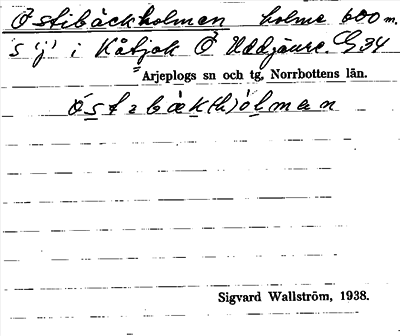 Östibäckholmen holme 600 m.
S 'j' i Kåtjok Ö Uddjaure. G34
Arjeplogs sn och tg, Norrbottens län.
ös̲t ɜ bæk̲(h)ò̲l̲mɜn
Sigvard Wallström, 1938.